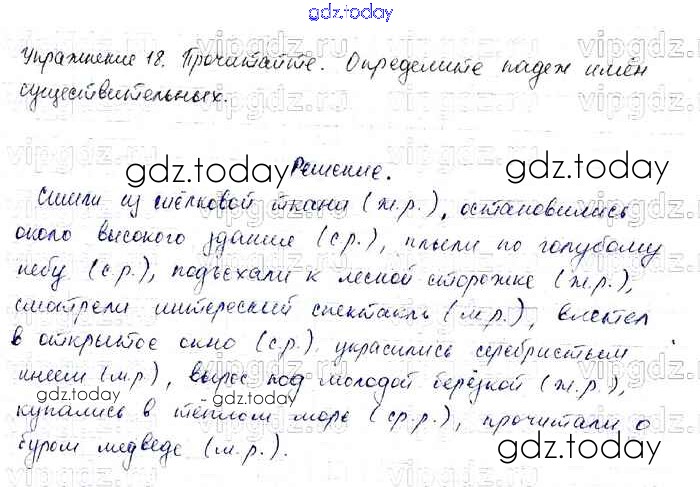 gdz.today
Упражнение 18. Прочитайте. Определите падеж имён
существительных.
gdz.today
Решение.
gdz.today
Сшили из шёлковой ткани (ж.р.), остановились
около высокого здания (ср.), плыли по голубому
небу (с.р.), подъехали к лесной сторожке (ж.р.),
смотрели интересный спектакль (м.р.), влетел
в открытое окно (с.р.) украсились серебристым
инеем (м.р.), вырос под молодой берёзкой (ж.р.),
купались в тёплом море (ср.р.), прочитали о
буром медведе (м.р.).
gdz.today
gdz.today